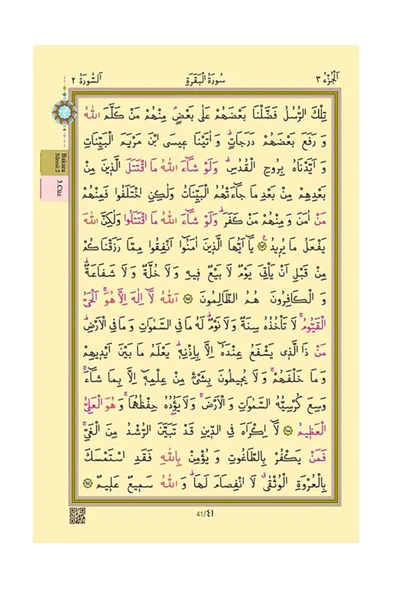 اَلْجُزْءُ ٣
سُورَةُ الْبَقَرَةِ
اَلسُّورَةُ ٢
تِلْكَ الرُّسُلُ فَضَّلْنَا بَعْضَهُمْ عَلٰى بَعْضٍۢ مِنْهُمْ مَنْ كَلَّمَ اللّٰهُ
وَ رَفَعَ بَعْضَهُمْ دَرَجَاتٍۜ وَ اٰتَيْنَا عٖيسَى ابْنَ مَرْيَمَ الْبَيِّنَاتِ
وَ اَيَّدْنَاهُ بِرُوحِ الْقُدُسِۜ وَلَوْ شَٓاءَ اللّٰهُ مَا اقْتَتَلَ الَّذٖينَ مِنْ
بَعْدِهِمْ مِنْ بَعْدِ مَا جَٓاءَتْهُمُ الْبَيِّنَاتُ وَلٰكِنِ اخْتَلَفُوا فَمِنْهُمْ
مَنْ اٰمَنَ وَ مِنْهُمْ مَنْ كَفَرَۜ وَلَوْ شَٓاءَ اللّٰهُ مَا اقْتَتَلُوا وَلٰكِنَّ اللّٰهَ
يَفْعَلُ مَا يُرٖيدُ ﴿٢٥٣﴾ يَٓا اَيُّهَا الَّذٖينَ اٰمَنُٓوا اَنْفِقُوا مِمَّا رَزَقْنَاكُمْ
مِنْ قَبْلِ اَنْ يَأْتِيَ يَوْمٌ لَا بَيْعٌ فٖيهِ وَ لَا خُلَّةٌ وَ لَا شَفَاعَةٌۜ
وَ الْكَافِرُونَ هُمُ الظَّالِمُونَ ﴿٢٥٤﴾ اَللّٰهُ لَٓا اِلٰهَ اِلَّا هُوَۚ اَلْحَيُّ
الْقَيُّومُۚ لَا تَأْخُذُهُ سِنَةٌ وَ لَا نَوْمٌۜ لَهُ مَا فِي السَّمٰوَاتِ وَ مَا فِي الْاَرْضِۜ
مَنْ ذَا الَّذٖي يَشْفَعُ عِنْدَهُٓ اِلَّا بِاِذْنِهٖۜ يَعْلَمُ مَا بَيْنَ اَيْدٖيهِمْ
وَ مَا خَلْفَهُمْۚ وَ لَا يُحٖيطُونَ بِشَيْءٍ مِنْ عِلْمِهٖٓ اِلَّا بِمَا شَٓاءَۚ
وَسِعَ كُرْسِيُّهُ السَّمٰوَاتِ وَ الْاَرْضَۚ وَ لَا يَؤُ۫دُهُ حِفْظُهُمَاۚ وَ هُوَ الْعَلِيُّ
الْعَظٖيمُ ﴿٢٥٥﴾ لَٓا اِكْرَاهَ فِي الدّٖينِ قَدْ تَبَيَّنَ الرُّشْدُ مِنَ الْغَيِّۚ
فَمَنْ يَكْفُرْ بِالطَّاغُوتِ وَ يُؤْمِنْ بِاللّٰهِ فَقَدِ اسْتَمْسَكَ
بِالْعُرْوَةِ الْوُثْقٰىۗ لَا انْفِصَامَ لَهَاۜ وَ اللّٰهُ سَمٖيعٌ عَلٖيمٌ ﴿٢٥٦﴾
Bakara
Sûresi: 2
3.Cüz
41/٤١